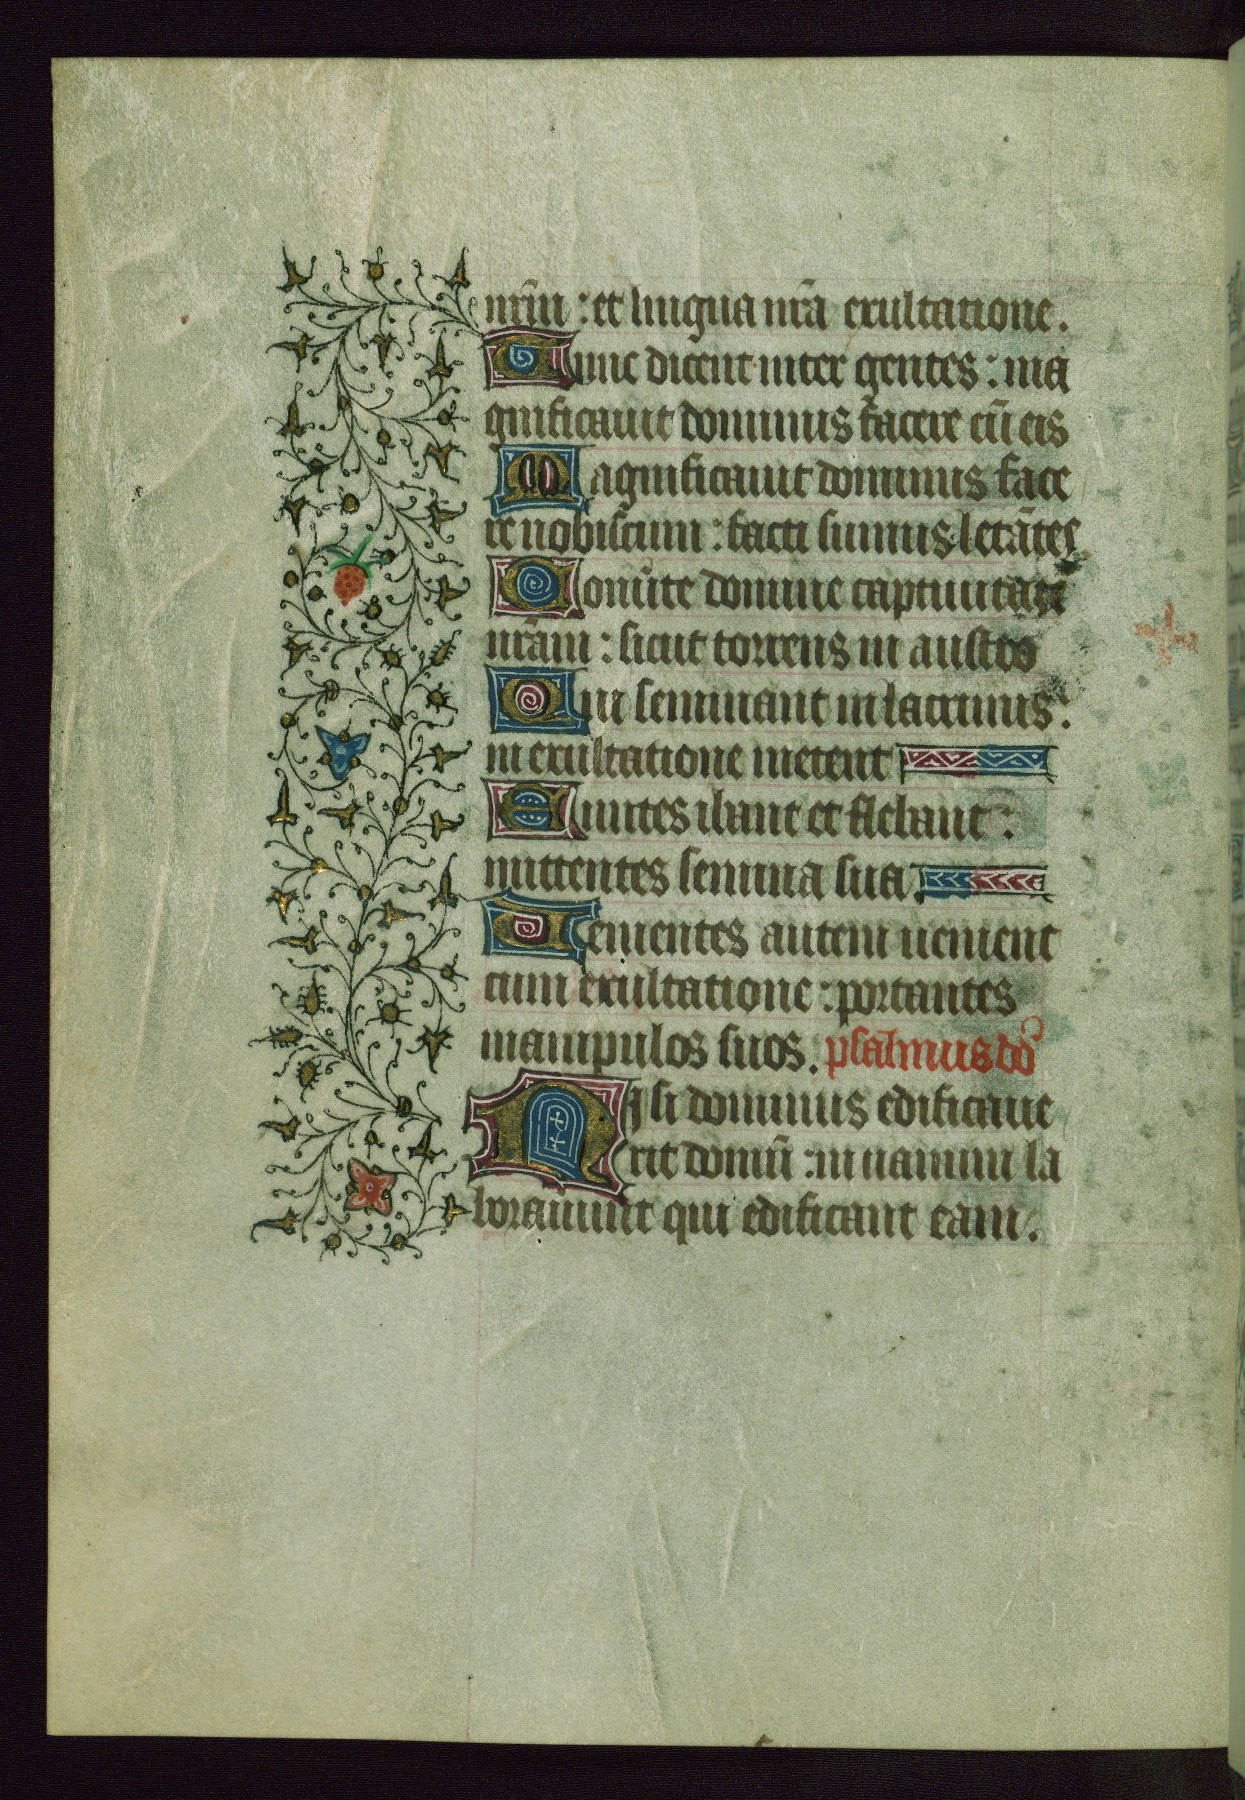 nr̄m : et lingua nr̄a exultatione.
Tunc dicent inter gentes : ma
gnificauit dominus facere cū eis
Magnificauit dominus face
re nobiscum : facti sumus letātes
Conuīte domine captiuitatē
nrām : sicut torrens in austro
Qui seminant in lacrimis :
in exultatione metent
Euntes ibant et flebant :
mittentes semina sua.
Uenientes autem uenient
cum exultatione : portantes
manipulos suos. psalmus dō
Nisi dominus edificaue
rit domū : in uanum la
borauiunt qui edificant eam.